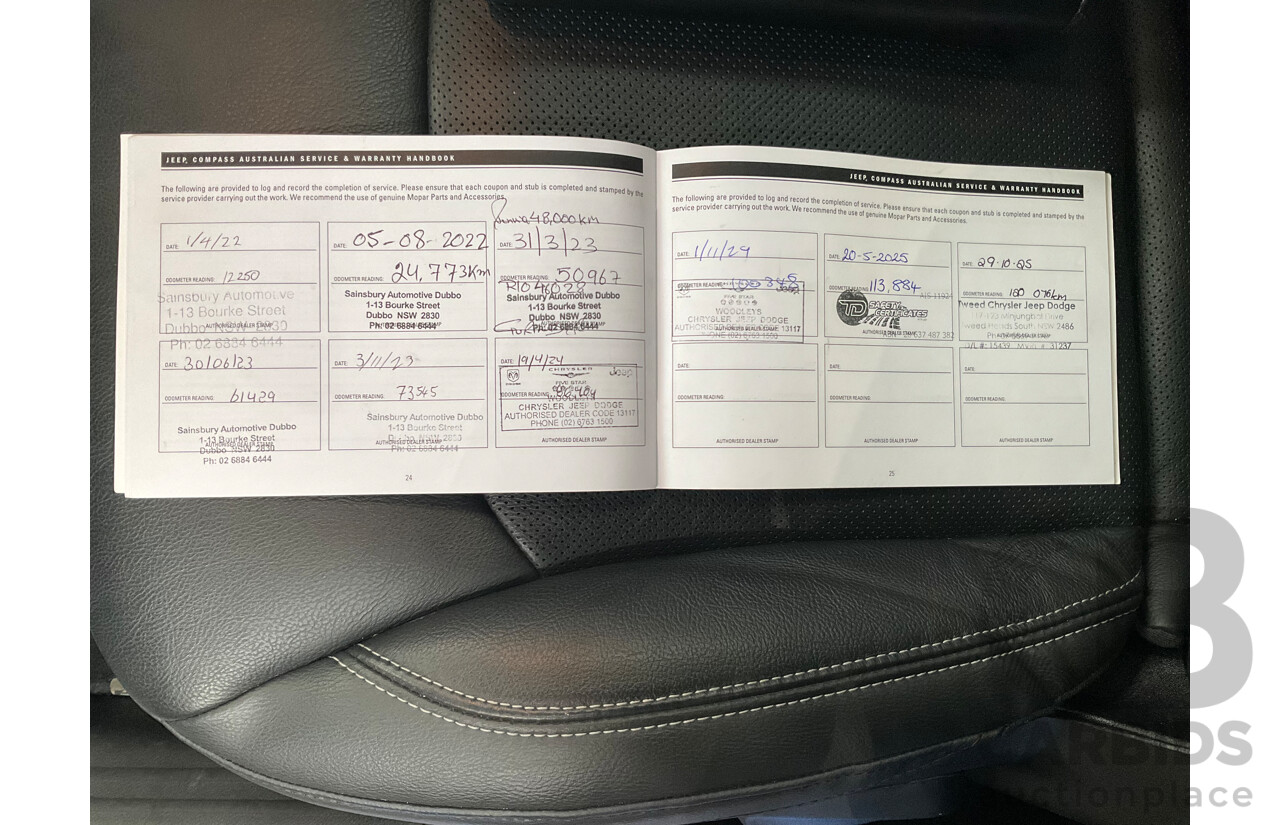 JEEP® COMPASS AUSTRALIAN SERVICE & WARRANTY HANDBOOK
The following are provided to log and record the completion of service. Please ensure that each coupon and stub is completed and stamped by the
service provider carrying out the work. We recommend the use of genuine Mopar Parts and Accessories.
48,000km
DATE: 1/4/22
ODOMETER READING: 12250
Sainsbury Automotive
1-13 Bourke Street
Dubbo NSW 2830
AUTHORISED DEALER STAMP
Ph: 02 6884 6444
DATE: 05-08-2022
ODOMETER READING: 24,773Km
Sainsbury Automotive Dubbo
1-13 Bourke Street
Dubbo NSW 2830
Ph: 02 6884 6444
AUTHORISED DEALER STAMP
DATE: 31/3/23
ODOMETER READING: 50967
Sainsbury Automotive Dubbo
1-13 Bourke Street
Dubbo NSW 2830
Ph: 02 6884 6444
DATE: 30/06/23
ODOMETER READING: 61429
Sainsbury Automotive Dubbo
1-13 Bourke Street
AUTHORISED DEALER STAMP
Dubbo NSW 2830
Ph: 02 6884 6444
DATE: 3/11/23
ODOMETER READING: 73545
Sainsbury Automotive Dubbo
1-13 Bourke Street
Dubbo NSW 2830
AUTHORISED DEALER STAMP
Ph: 02 6884 6444
DATE: 19/4/24
CHRYSLER
Jeep
FIVE STAR
ODOMETER READING:
CHRYSLER JEEP DODGE
AUTHORISED DEALER CODE 13117
PHONE (02) 6763 1500
AUTHORISED DEALER STAMP
24
JEEP® COMPASS AUSTRALIAN SERVICE & WARRANTY HANDBOOK
The following are provided to log and record the completion of service. Please ensure that each coupon and stub is completed and stamped by the
service provider carrying out the work. We recommend the use of genuine Mopar Parts and Accessories.
DATE: 1/11/24
ODOMETER READING:
Jeep
FIVE STAR
WOODLEYS
CHRYSLER JEEP DODGE
AUTHORISED DEALER STAMP
13117
PHONE (02) 6763 1500
DATE: 20-5-2025
ODOMETER READING: 113,884
TD SAFETY CERTIFICATES
AUTHORISED DEALER STAMP
DATE: 29·10·25
ODOMETER READING:
Tweed Chrysler Jeep Dodge
Tweed Heads South, NSW 2486
31237
DATE:
ODOMETER READING:
AUTHORISED DEALER STAMP
DATE:
ODOMETER READING:
AUTHORISED DEALER STAMP
DATE:
ODOMETER READING:
AUTHORISED DEALER STAMP
25
CARBIDS
auctionplace